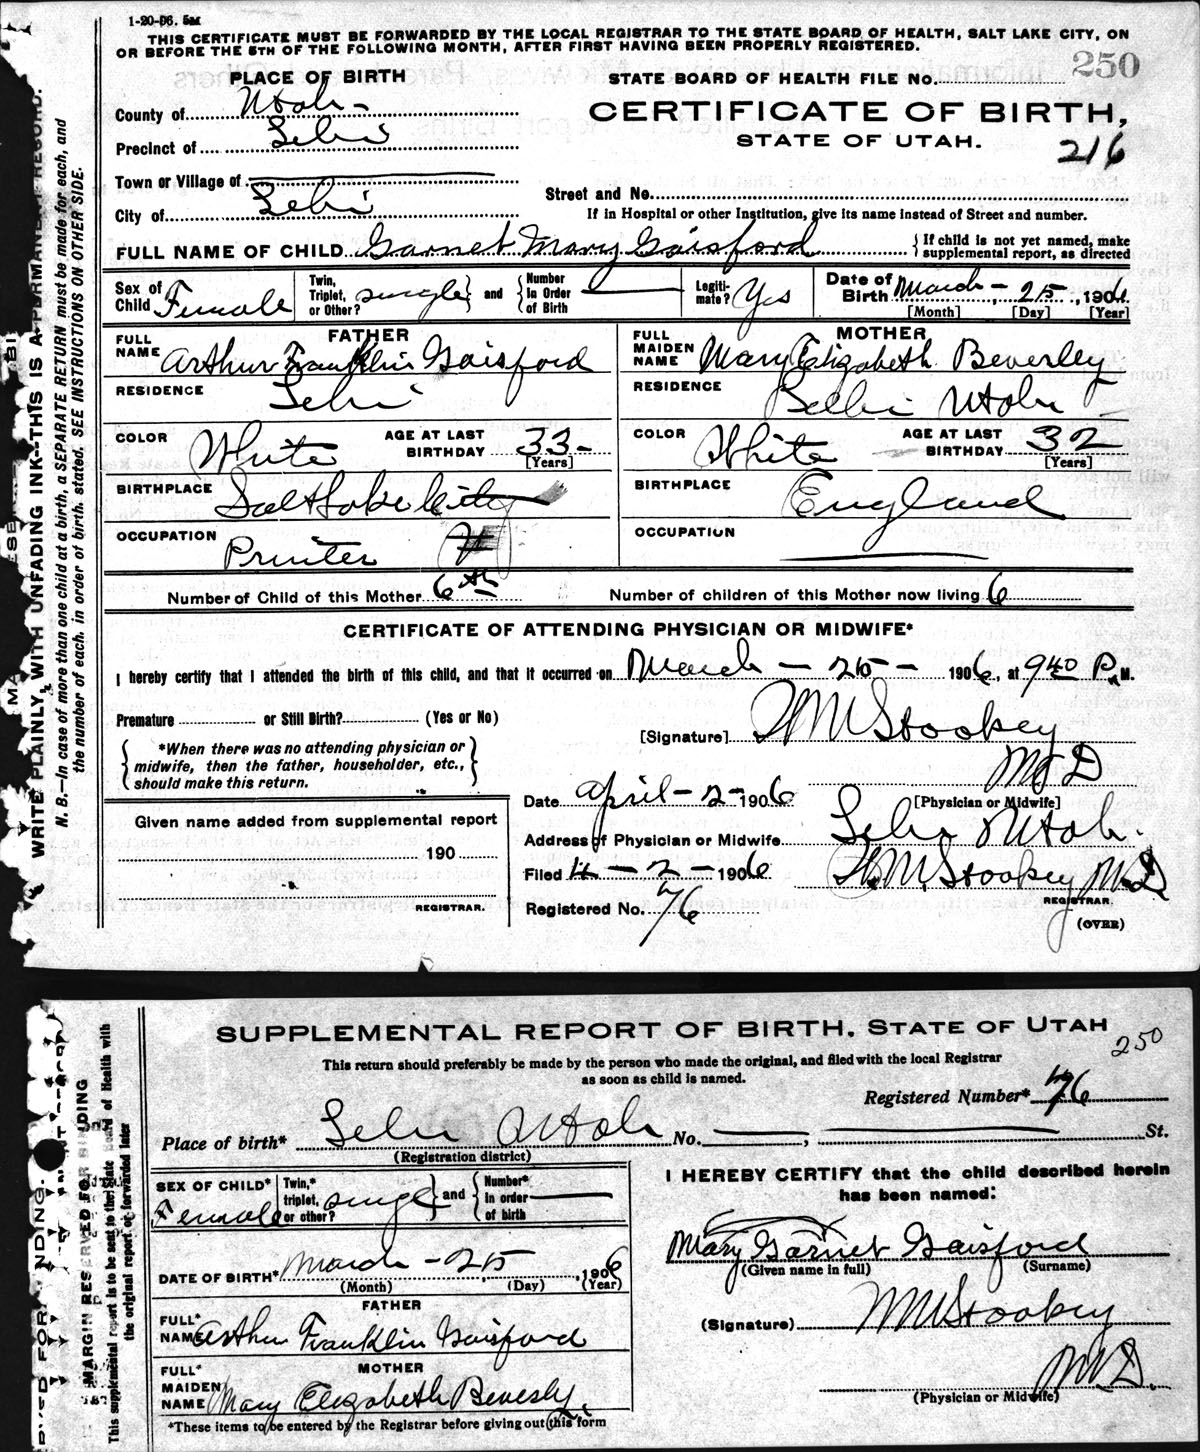 1-20-06. 5M
THIS CERTIFICATE MUST BE FORWARDED BY THE LOCAL REGISTRAR TO THE STATE BOARD OF HEALTH, SALT LAKE CITY, ON
OR BEFORE THE 5TH OF THE FOLLOWING MONTH, AFTER FIRST HAVING BEEN PROPERLY REGISTERED.
PLACE OF BIRTH
STATE BOARD OF HEALTH FILE No. 250
County of Utah
CERTIFICATE OF BIRTH,
Precinct of Lehi
STATE OF UTAH.
216
Town or Village of
Street and No.
City of Lehi
If in Hospital or other Institution, give its name instead of Street and number.
FULL NAME OF CHILD Garnet Mary Gaisford {If child is not yet named, make supplemental report, as directed
Sex of Child Female Twin, Triplet, or Other? single and Number in Order of Birth Legitimate? Yes Date of Birth March - 25, 1906
[Month] [Day] [Year]
FATHER
MOTHER
FULL NAME Arthur Franklin Gaisford
FULL MAIDEN NAME Mary Elizabeth Beverley
RESIDENCE Lehi
RESIDENCE Lehi Utah
COLOR White AGE AT LAST BIRTHDAY 33 [Years]
COLOR White AGE AT LAST BIRTHDAY 32 [Years]
BIRTHPLACE Salt Lake City
BIRTHPLACE England
OCCUPATION Printer
OCCUPATION
Number of Child of this Mother 6th Number of children of this Mother now living 6
CERTIFICATE OF ATTENDING PHYSICIAN OR MIDWIFE*
I hereby certify that I attended the birth of this child, and that it occurred on March - 25 - 1906, at 9 40 P.M.
Premature or Still Birth? (Yes or No)
[Signature] W M Stookey
M D
[Physician or Midwife]
*When there was no attending physician or
midwife, then the father, householder, etc.,
should make this return.
Date April - 2 - 1906
Given name added from supplemental report
190
REGISTRAR.
Address of Physician or Midwife Lehi Utah.
Filed 4 - 2 - 1906 W. M. Stookey M.D
REGISTRAR.
Registered No. 76
(OVER)
WRITE PLAINLY, WITH UNFADING INK—THIS IS A PERMANENT RECORD.
N. B.—In case of more than one child at a birth, a SEPARATE RETURN must be made for each, and
the number of each, in order of birth, stated. SEE INSTRUCTIONS ON OTHER SIDE.
SUPPLEMENTAL REPORT OF BIRTH, STATE OF UTAH
250
This return should preferably be made by the person who made the original, and filed with the local Registrar
as soon as child is named.
Registered Number* 76
Place of birth* Lehi Utah No. , St.
(Registration district)
SEX OF CHILD* Female Twin,* triplet, or other? single and Number* in order of birth
I HEREBY CERTIFY that the child described herein
has been named:
Mary Garnet Gaisford
(Given name in full) (Surname)
DATE OF BIRTH* March - 25, 1906
(Month) (Day) (Year)
FATHER
FULL* NAME Arthur Franklin Gaisford
(Signature) W M Stookey
M D.
(Physician or Midwife)
MOTHER
FULL* MAIDEN NAME Mary Elizabeth Beverly
*These items to be entered by the Registrar before giving out this form
MARGIN RESERVED FOR BINDING
This supplemental report to be sent to the State Board of Health with
the original report or forwarded later